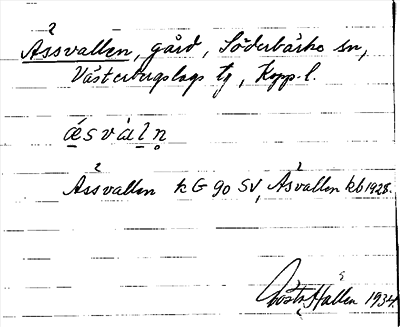 Åssvallen, gård, Söderbärke sn,
Västerbergslags tg, Kopp. l.
ásvàln̥
Åssvallen kG 90 SV, Åsvallen kb 1928.
Gösta Hallén 1934.